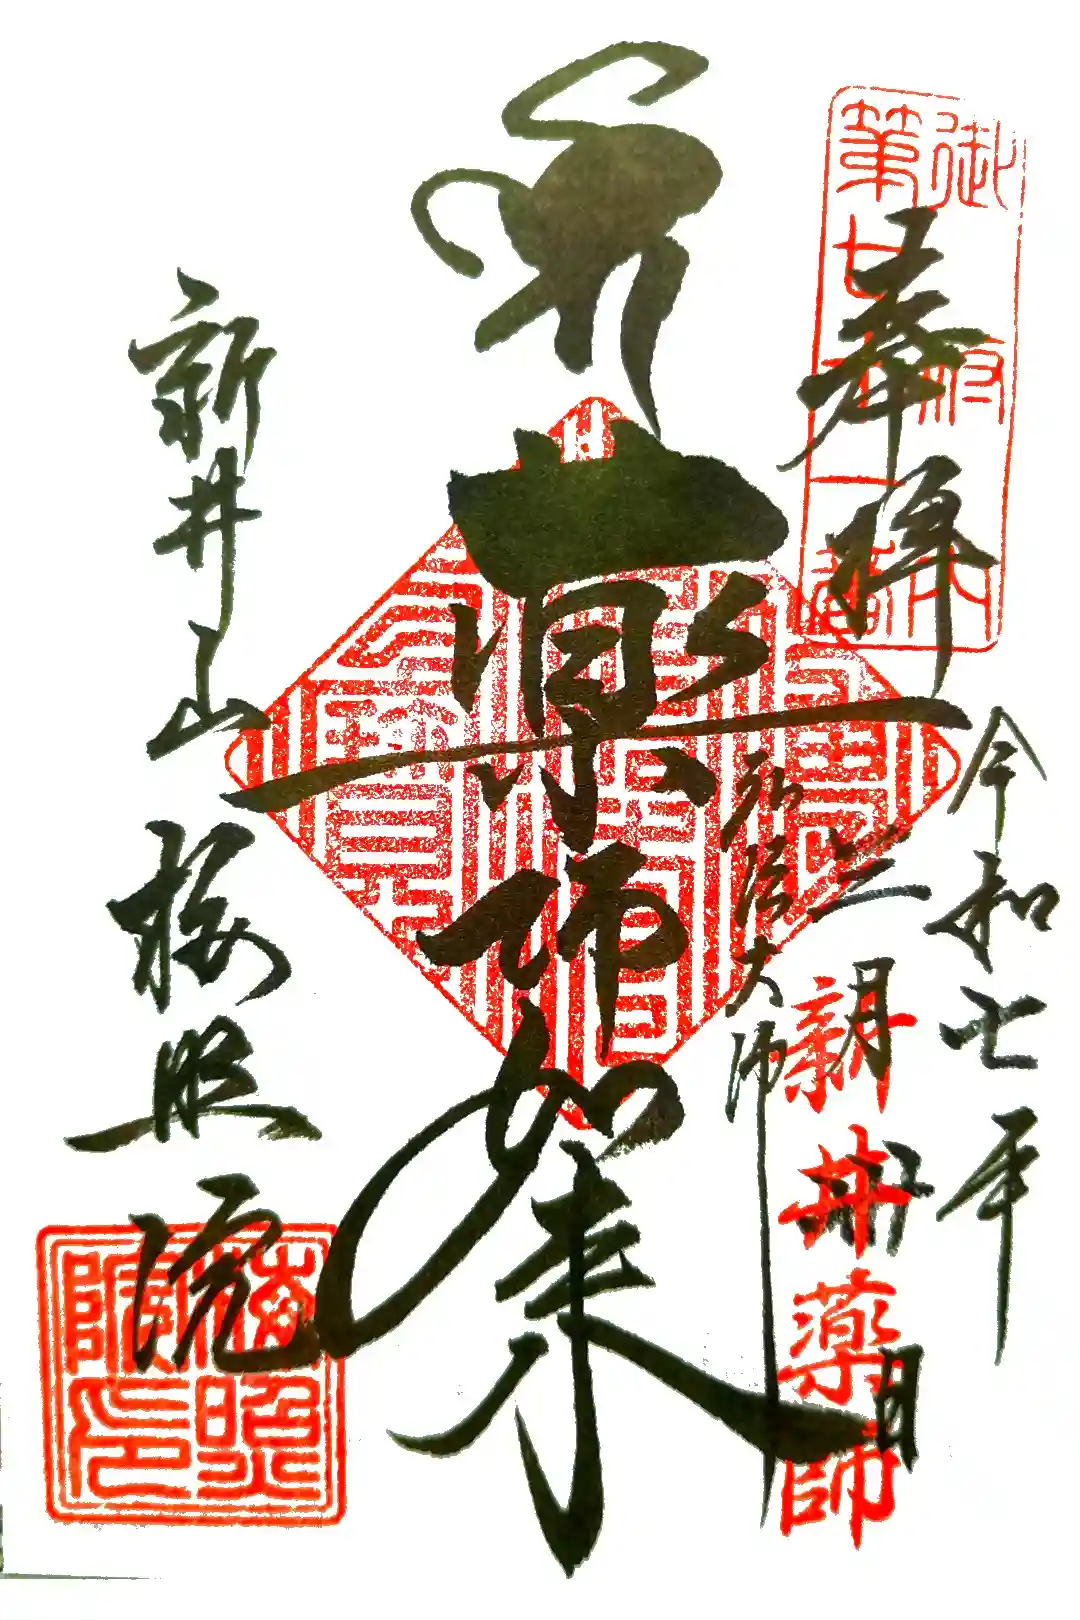 御府内
第七十一番
奉拝
令和七年
三月
日
新井薬師
弘法大師
薬師如来
新井山 梅照院
梅照院印